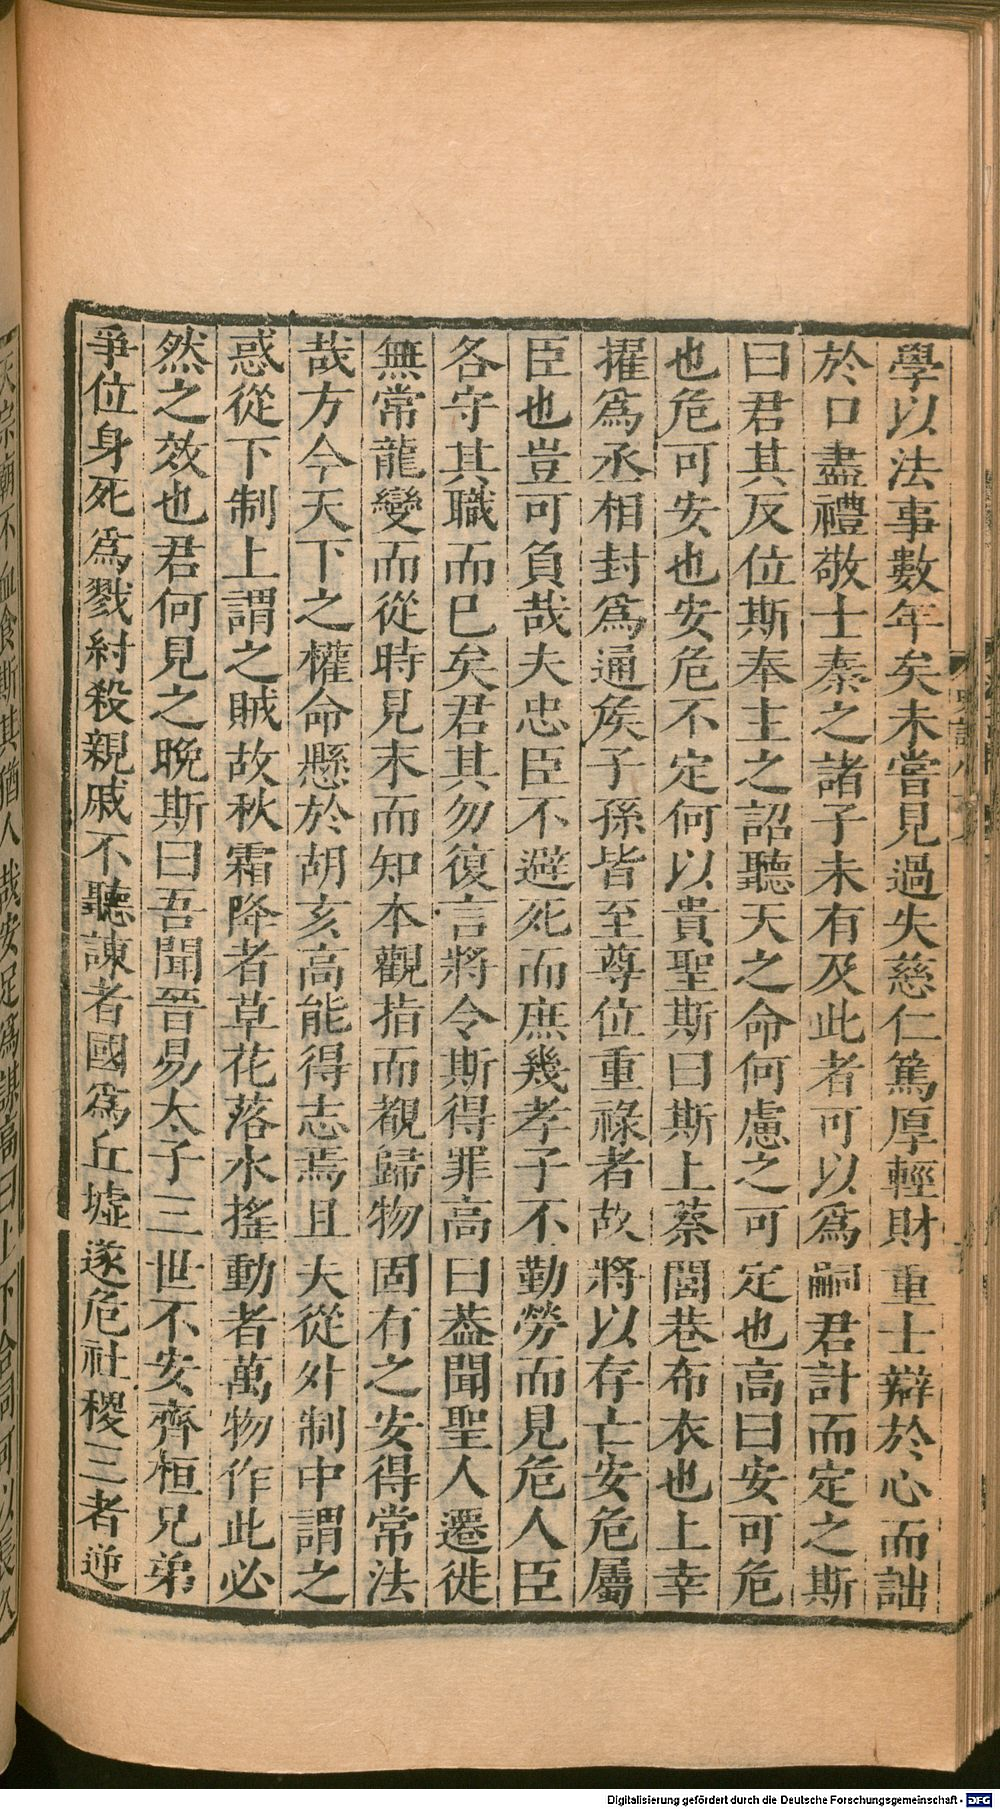 學以法事數年矣未嘗見過失慈仁篤厚輕財重士辯於心而詘
於口盡禮敬士秦之諸子未有及此者可以爲嗣君計而定之斯
曰君其反位斯奉主之詔聽天之命何慮之可定也高曰安可危
也危可安也安危不定何以貴聖斯曰斯上蔡閭巷布衣也上幸
擢爲丞相封爲通侯子孫皆至尊位重祿者故將以存亡安危屬
臣也豈可負哉夫忠臣不避死而庶幾孝子不勤勞而見危人臣
各守其職而已矣君其勿復言將令斯得罪高曰葢聞聖人遷徙
無常龍變而從時見末而知本觀指而覩歸物固有之安得常法
哉方今天下之權命懸於胡亥高能得志焉且夫從外制中謂之
惑從下制上謂之賊故秋霜降者草花落水搖動者萬物作此必
然之效也君何見之晚斯曰吾聞晉易太子三世不安齊桓兄弟
爭位身死爲戮紂殺親戚不聽諫者國爲丘墟遂危社稷三者逆
天宗廟不血食斯其猶人哉安足爲謀高曰上下合同可以長久
Digitalisierung gefördert durch die Deutsche Forschungsgemeinschaft - DFG